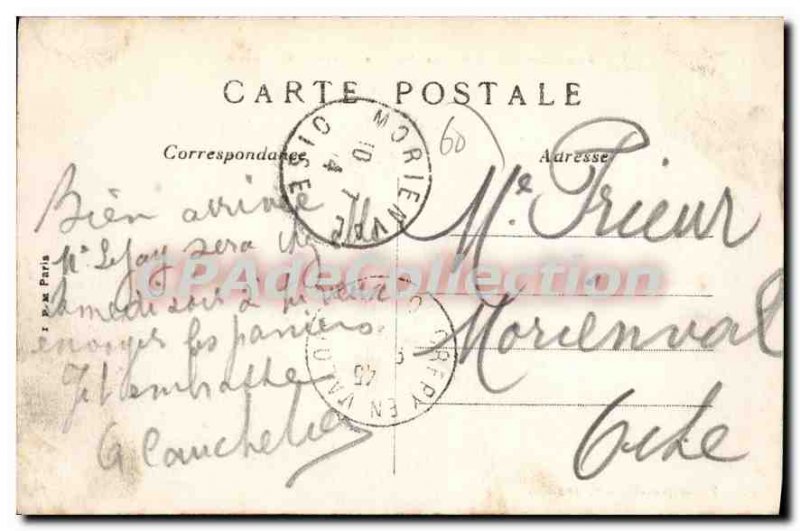 CARTE POSTALE
Correspondance
Adresse
60
MORIENVAL
OISE
10 7
4
Bien arrivée
Mr Lejay sera
samedi soir à
envoyer les paniers.
Je t'embrasse
G Cauchelier
Me Prieur
Morienval
Oise
CREPY EN VALOIS
45
CPAdeCollection
I P. M Paris